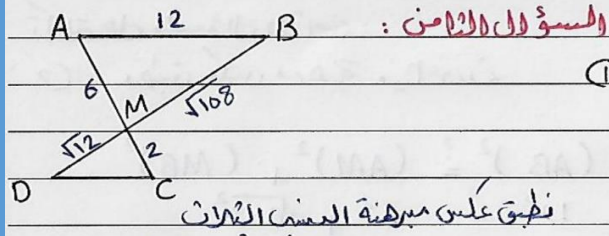 السؤال الثامن :
①
A 12 B
6 M √108
√12 2
D C
نطبق عكس مبرهنة النسب الثلاث